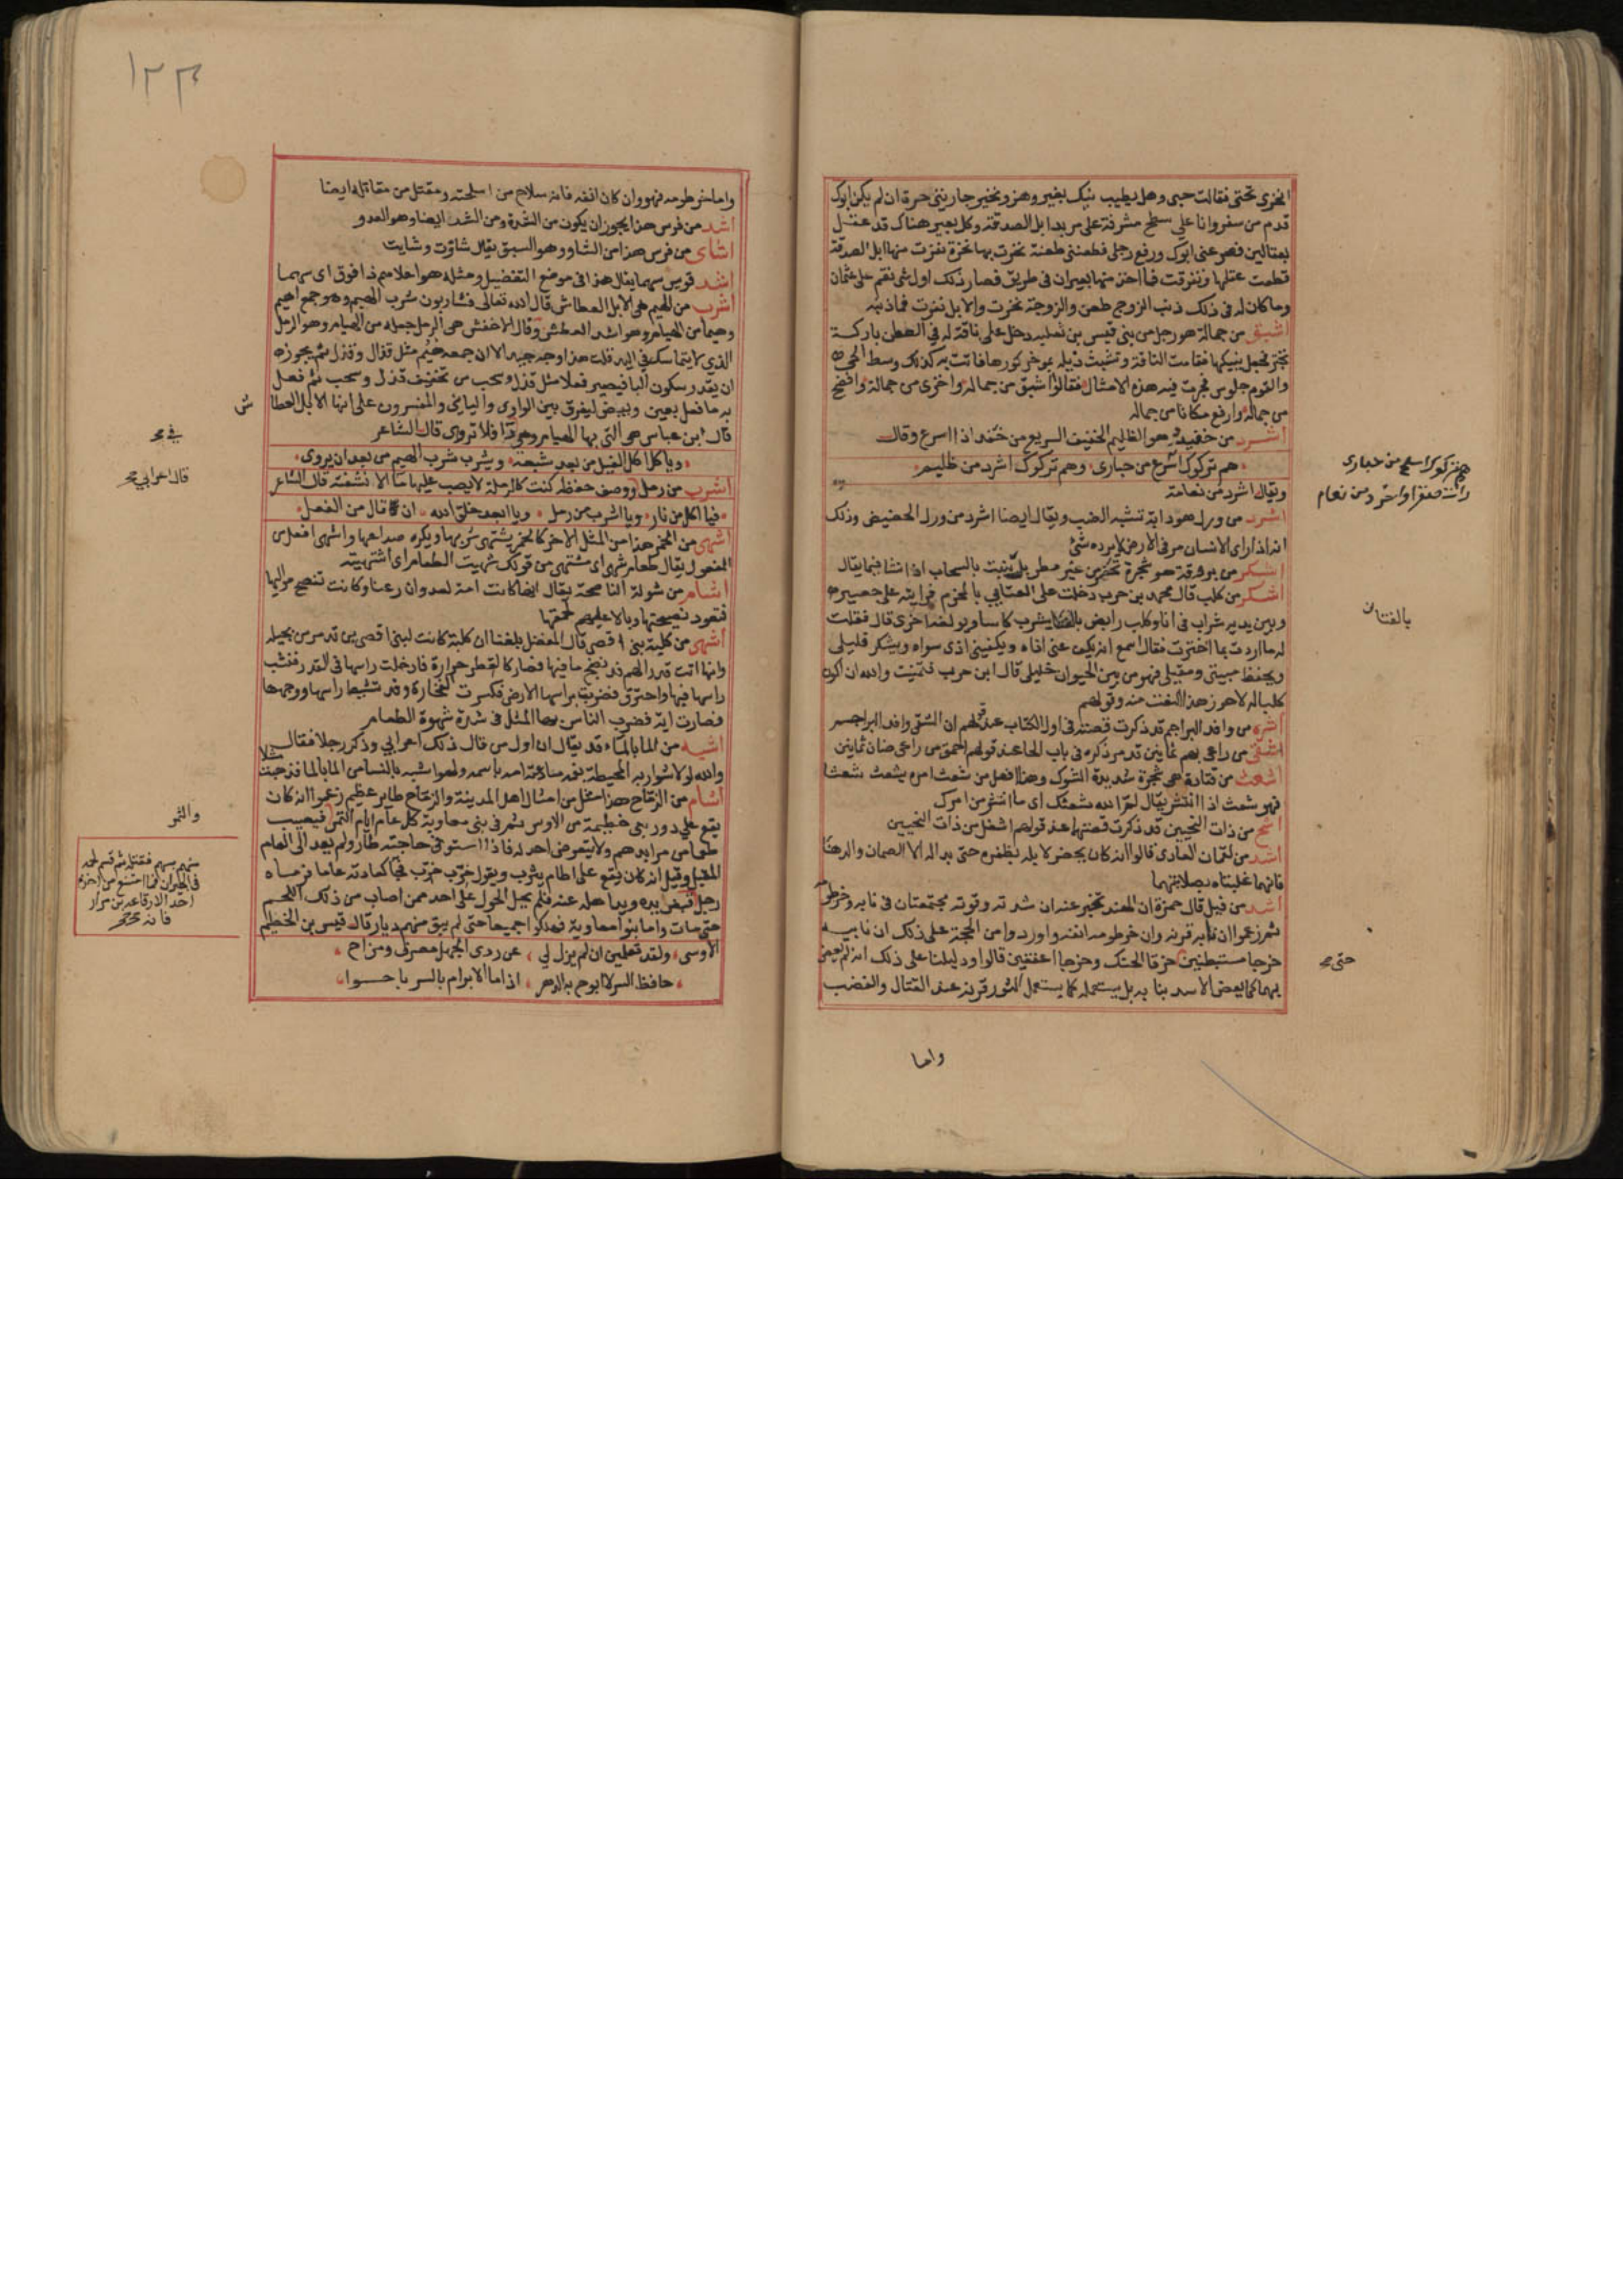 قدم من سفر وانا على سطح مشرفة على مربد ابل الصدقة وكل بعير هناك قد عقل
بعقالين فصرعنى ابوك ورفع رجلى فطعننى طعنة نخرت بها نخرة نفرت منها ابل الصدقة
قطعت عقلها وتفرقت فما اخذ منها بعيران فى طريق فصار ذلك اول شى نقم على عثمان
وما كان له فى ذلك ذنب الزوج طعن والزوجة نخرت والابل نفرت فما ذنبه
اشبق من جمالة هو رجل من بنى قيس بن ثعلبه دخل على ناقة له فى العطن باركة
والقوم جلوس فجرت فيه هذه الامثال فقالوا اشبق من جمالة واخزى من جمالة وافضح
من جمالة وارفع مكانا من جماله
اشرد من خفيدد هو الظليم الخفيف السريع من خفد اذا اسرع وقال
هم تركوك اسرع من حبارى وهم تركوك اشرد من ظليم
ويقال اشرد من نعامة
اشرد من ورل هو دابة تشبه الضب ويقال ايضا اشرد من ورل الحضيض وذلك
انه اذا راى الانسان مر فى الارض لا يرده شئ
اشكر من بروقة هو شجرة تخضر من غير مطر بل تنبت بالسحاب اذا نشا فيما يقال
اشكر من كلب قال محمد بن حرب دخلت على العتابى بالمخرم فرايته على حصير
وبين يديه شراب فى انا وكلب رابض يشرب كاسا ويولغه اخرى قال فقلت
له ما اردت بما اخترت فقال اسمع انه يكف عنى اذاه ويكفينى اذى سواه ويشكر قليلى
ويحفظ مبيتى ومقيلى فهو من بين الحيوان خليلى قال ابن حرب فتمنيت والله ان اكون
كلبا له لاحوز هذا النعت منه وقولهم
اشره من وافد البراجم قد ذكرت قصته فى اول الكتاب عند قولهم ان الشقى وافد البراجم
اشقى من راعى بهم ثمانين قد مر ذكره فى باب الحا عند قولهم احمق من راعى ضان ثمانين
اشعث من قتادة هى شجرة شديدة الشوك وهذا افعل من شعث امره يشعث شعثا
فهو شعث اذا انتشر يقال لم الله شعثك اى ما انتشر من امرك
اشح من ذات النحيين قد ذكرت قصتها عند قولهم اشغل من ذات النحيين
اشد من لقمان العادى قالوا انه كان يحفر لابله بظفره حتى بدا له الا الصمان والدهنا
فانهما غلبتاه بصلابتهما
اشد من فيل قال حمزة ان الهند تخبر عنه ان شدته وقوته مجتمعتان فى نابه وخرطومه
ثم زعموا ان نابه قرنه وان خرطومه انفه واوردوا من الحجة على ذلك ان نابيه
خرجا مستبطنين خرقا الحنك وخرجا اعقفين قالوا ودليلنا على ذلك انه لم يعض
بهما كما يعض الاسد بنابه بل يستعمله كما يستعمل الثور قرنه عند القتال والغضب
واما
بالفتان
حتى
١٢٣
واما خرطومه فهو وان كان انفه فانه سلاح من اسلحته ومقتل من مقاتله ايضا
اشد من فرس هذا يجوز ان يكون من الشدة ومن الشد ايضا وهو العدو
اشاى من فرس هذا من الشاو وهو السبق يقال شاوت وشايت
اشد قويس سهما يقال هذا فى موضع التفضيل ومثله هو اعلاهم ذا فوق اى سهما
اشرب من الهيم هى الابل العطاش قال الله تعالى فشاربون شرب الهيم وهو جمع اهيم
وهيما من الهيام وهو اشد العطش وقال الاخفش هى الرمل جعله من الهيام وهو الرمل
الذى لا يتماسك فى اليد قلت هذا وجه جيد الا ان جمعه هيم مثل قذال وقذل ثم يجوز
به ما فعل بعين وبيض ليفرق بين الواوى واليايى والمفسرون على انها الابل العطا
ش
قال ابن عباس هى التى بها الهيام وهو دا فلا تروى قال الشاعر
وياكل اكل الفيل من بعد شبعه ويشرب شرب الهيم من بعد ان يروى
اشرب من رمل ووصف حفظه كنت كالرملة لا يصب عليها ما الا نشفته قال الشاعر
فيا اكل من نار ويا اشرب من رمل ويا ابعد خلق الله ان قال من الفعل
اشهى من الخمر هذا من المثل الاخر كالخمر يشتهى شربها ويكره صداعها واشهى افعل من
المفعول يقال طعام شهى اى مشتهى من قولك شهيت الطعام اى اشتهيته
اشام من شولة الناصحة يقال انها كانت امة لعدوان رعنا وكانت تنصح مواليها
فتعود نصيحتها وبالا عليهم لحمقها
اشهى من كلبة بنى افصى قال المفضل بلغنا ان كلبة كانت لبنى افصى بن تدمر من بجيله
وانها اتت قدرا لهم قد نضج ما فيها فصار كالقطر حرارة فادخلت راسها فى القدر فنشب
راسها فيها واحترق فضربت براسها الارض فكسرت الفخارة وقد تشيط راسها ووجهها
فصارت اية فضرب الناس بها المثل فى شدة شهوة الطعام
اشبه من الما بالماء قد يقال ان اول من قال ذلك اعرابى وذكر رجلا فقال
والله لولا شواربه المحيطة بفمه ما دعته امه باسمه ولهو اشبه بالنسا من الما بالما فذهبت
مثلا
اشام من الزماح هذا مثل من امثال اهل المدينة والزماح طاير عظيم زعموا انه كان
يقع على دور بنى خطيمة من الاوس ثم فى بنى معاوية كل عام ايام التمر فيصيب
طعاما من مرابدهم ولا يتعرض احد له فاذا استوفى حاجته طار ولم يعد الى العام
المقبل وقيل انه كان يقع على اطام يثرب ويقول خرب خرب فجا كعادته عاما فرماه
حتى مات واما بنو معاوية فهلكوا جميعا حتى لم يبق منهم ديار قال قيس بن الخطيم
الاوسى ولقد تعلمين ان لم يزل لى عن ردى الجهل مصرف ومزاح
قال اعرابى
والثمر
منهم بسهم فقتله ثم قسم لحمه
فى الجيران فما امتنع من اخذه
احد الا رفاعة بن مرار
فانه